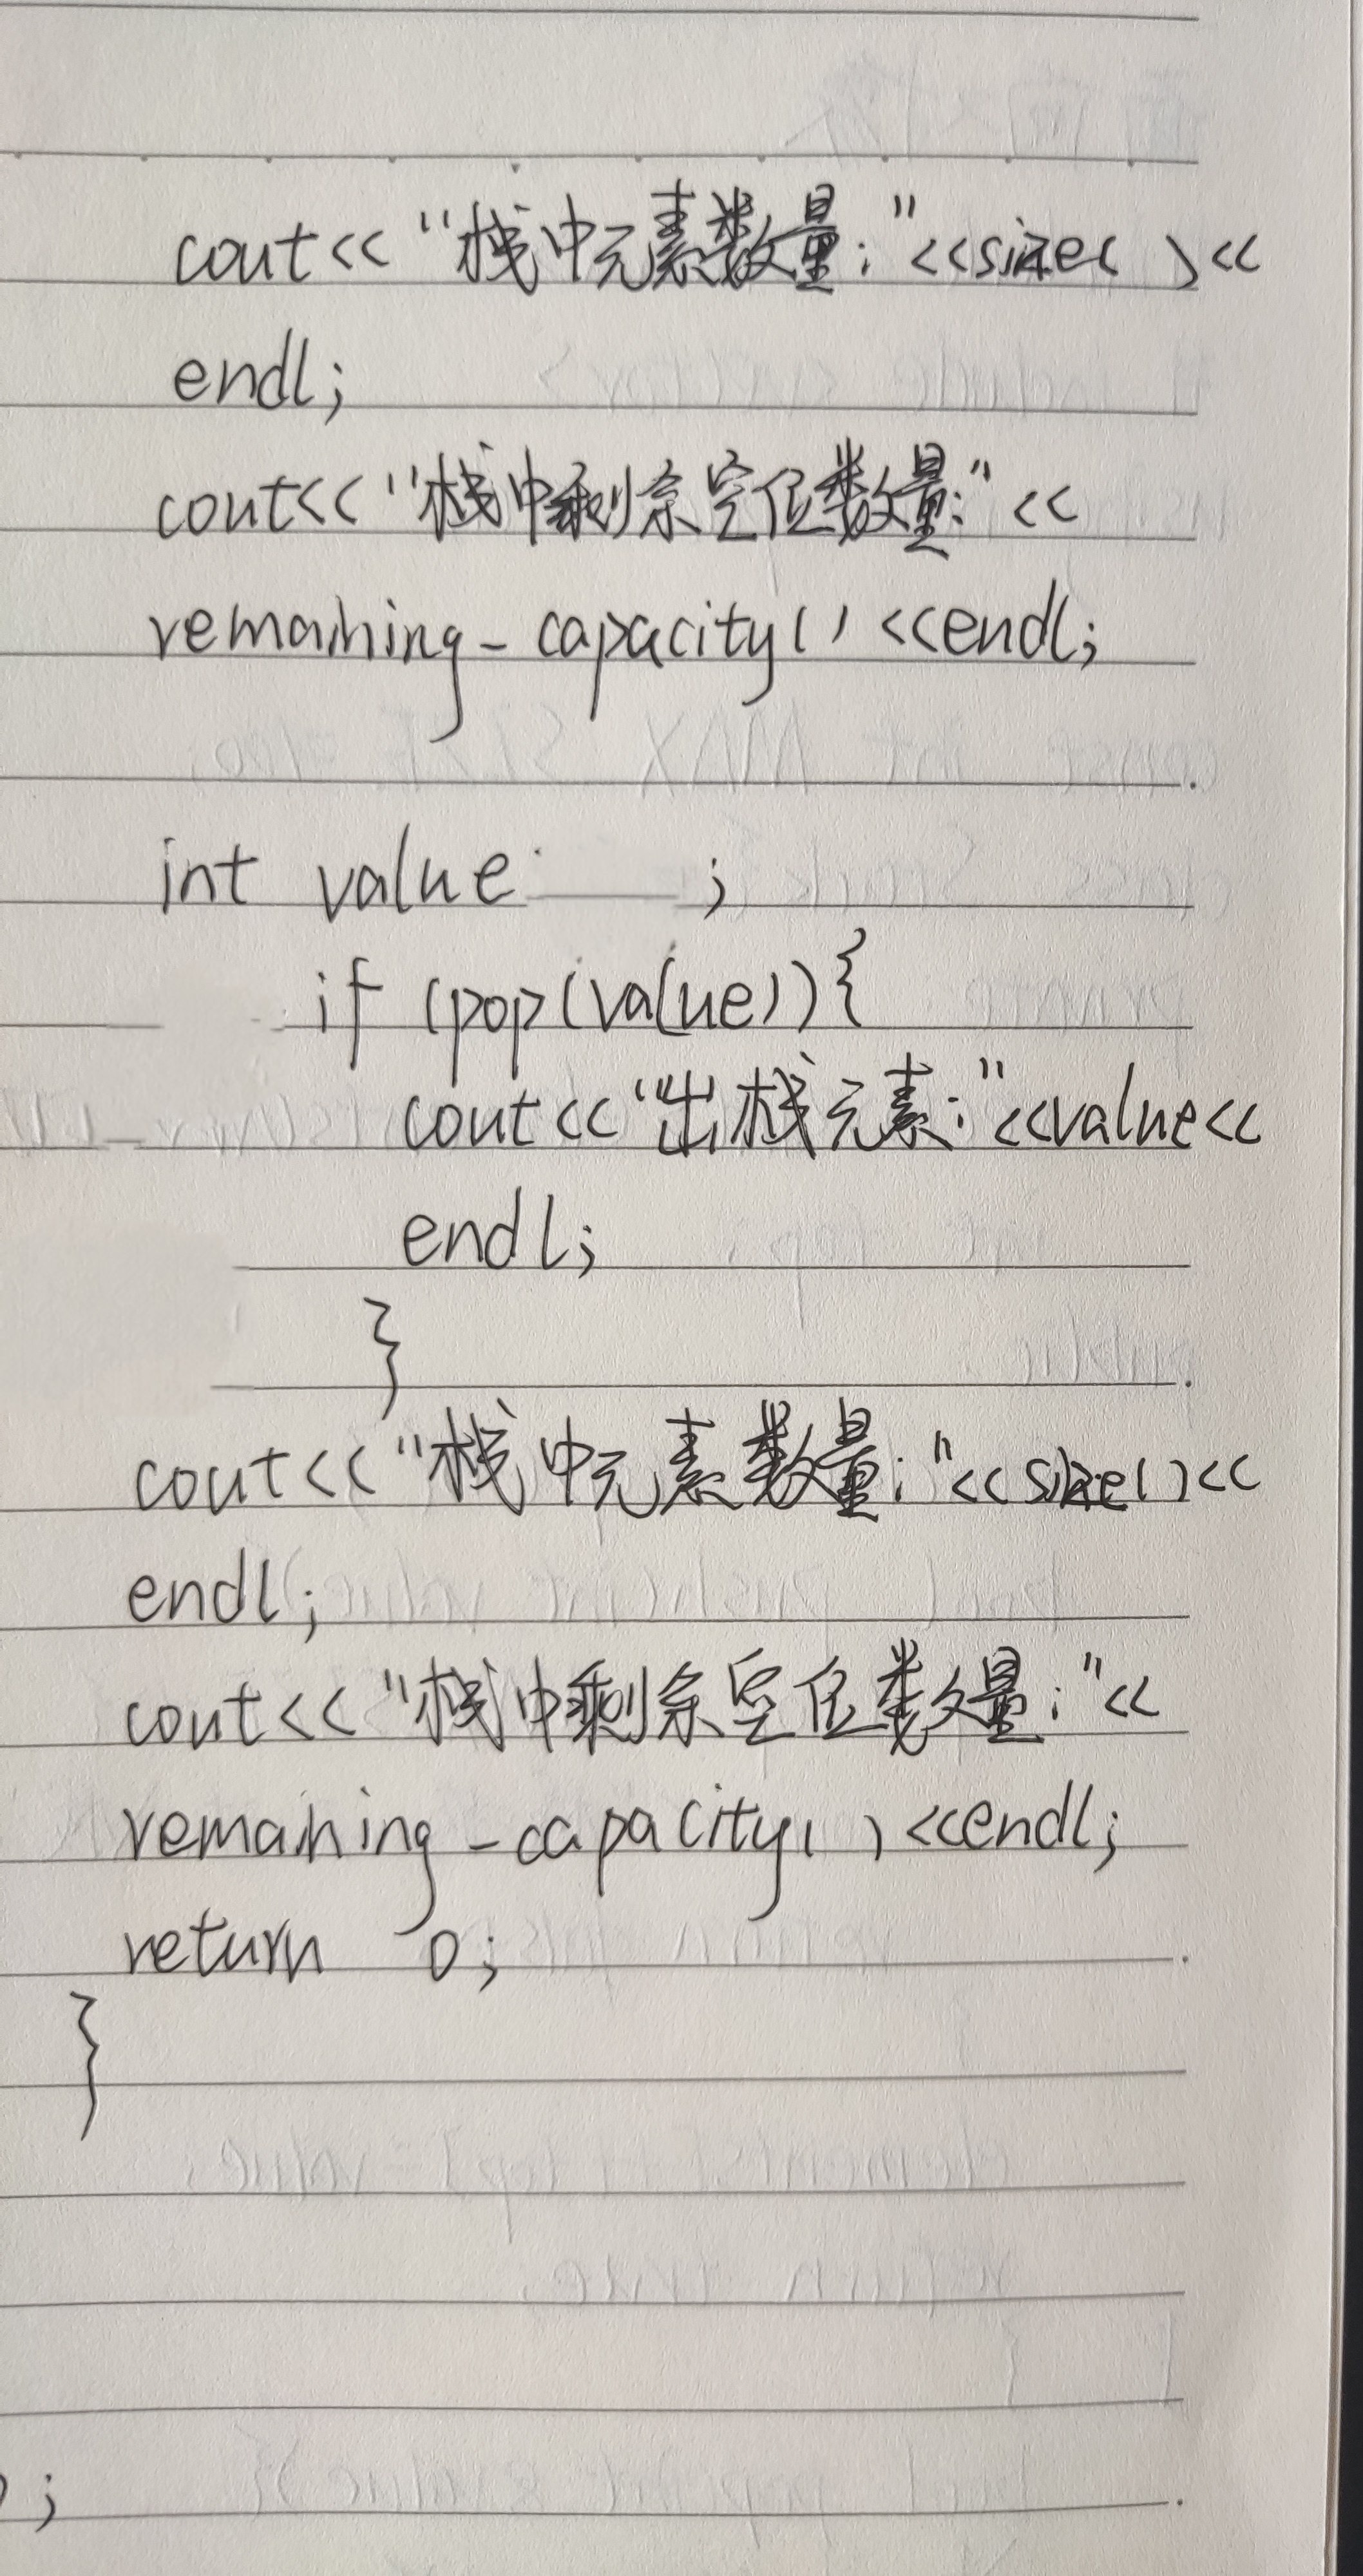 cout<< "栈中元素数量:" <<size( )<<
endl;
cout<< "栈中剩余空位数量:" <<
remaining_capacity( ) <<endl;
int value ;
if (pop(value)){
cout<< "出栈元素:" <<value<<
endl;
}
cout<< "栈中元素数量:" <<size()<<
endl;
cout<< "栈中剩余空位数量:" <<
remaining_capacity( ) <<endl;
return 0;
}
;